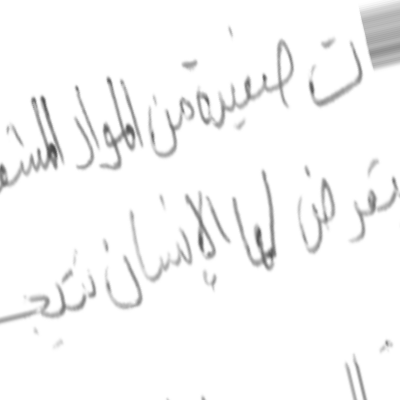 ت صغيرة من المواد المشع
يتعرض لها الإنسان نتيجـ